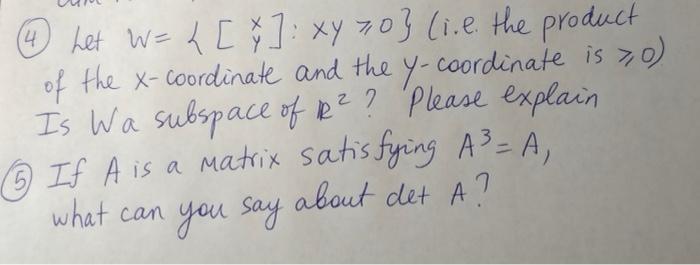 ④ Let W = { [ x y ] : xy ≥ 0 } (i.e. the product
of the x-coordinate and the y-coordinate is ≥ 0)
Is W a subspace of ℝ² ? Please explain
⑤ If A is a matrix satisfying A³ = A,
what can you say about det A ?